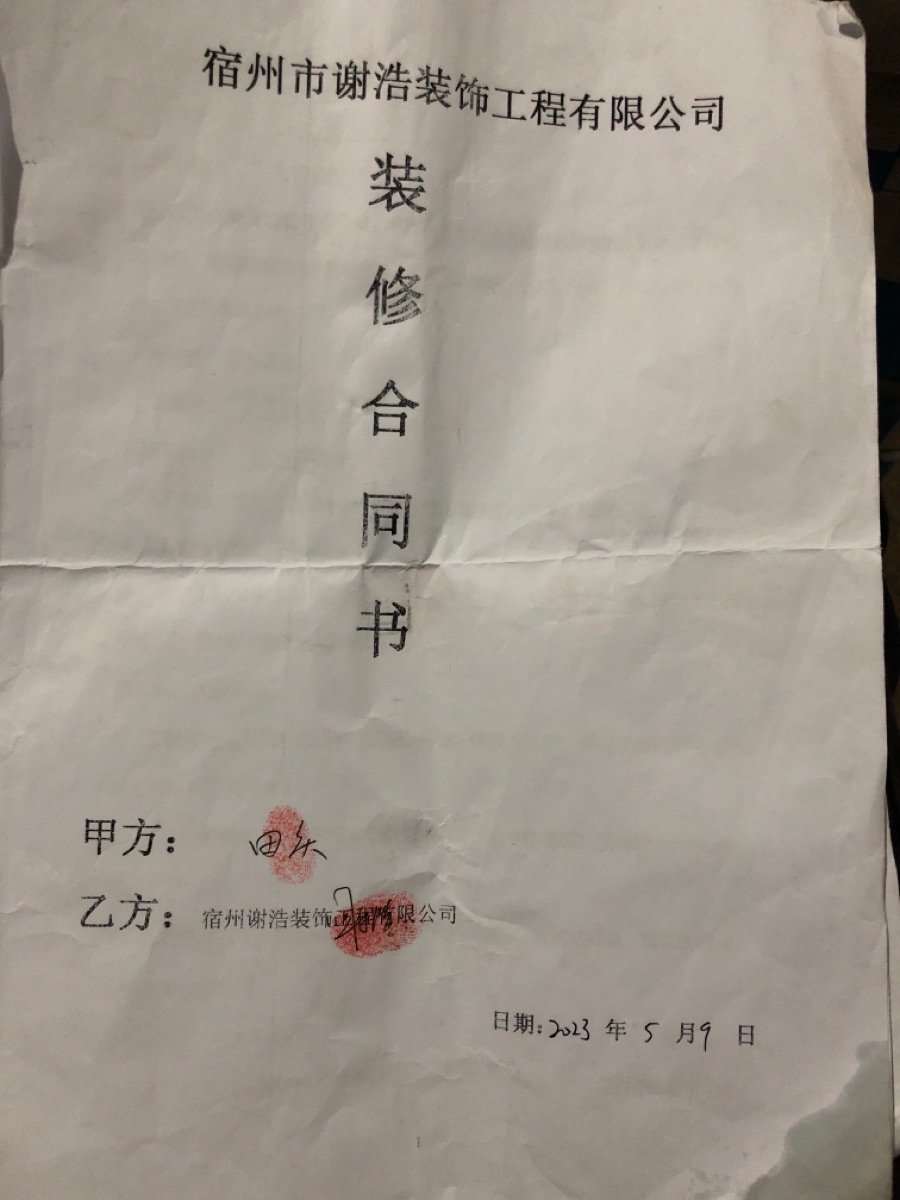 宿州市谢浩装饰工程有限公司
装
修
合
同
书
甲方：田
乙方：宿州谢浩装饰工程有限公司
日期：2023 年 5 月 9 日
1